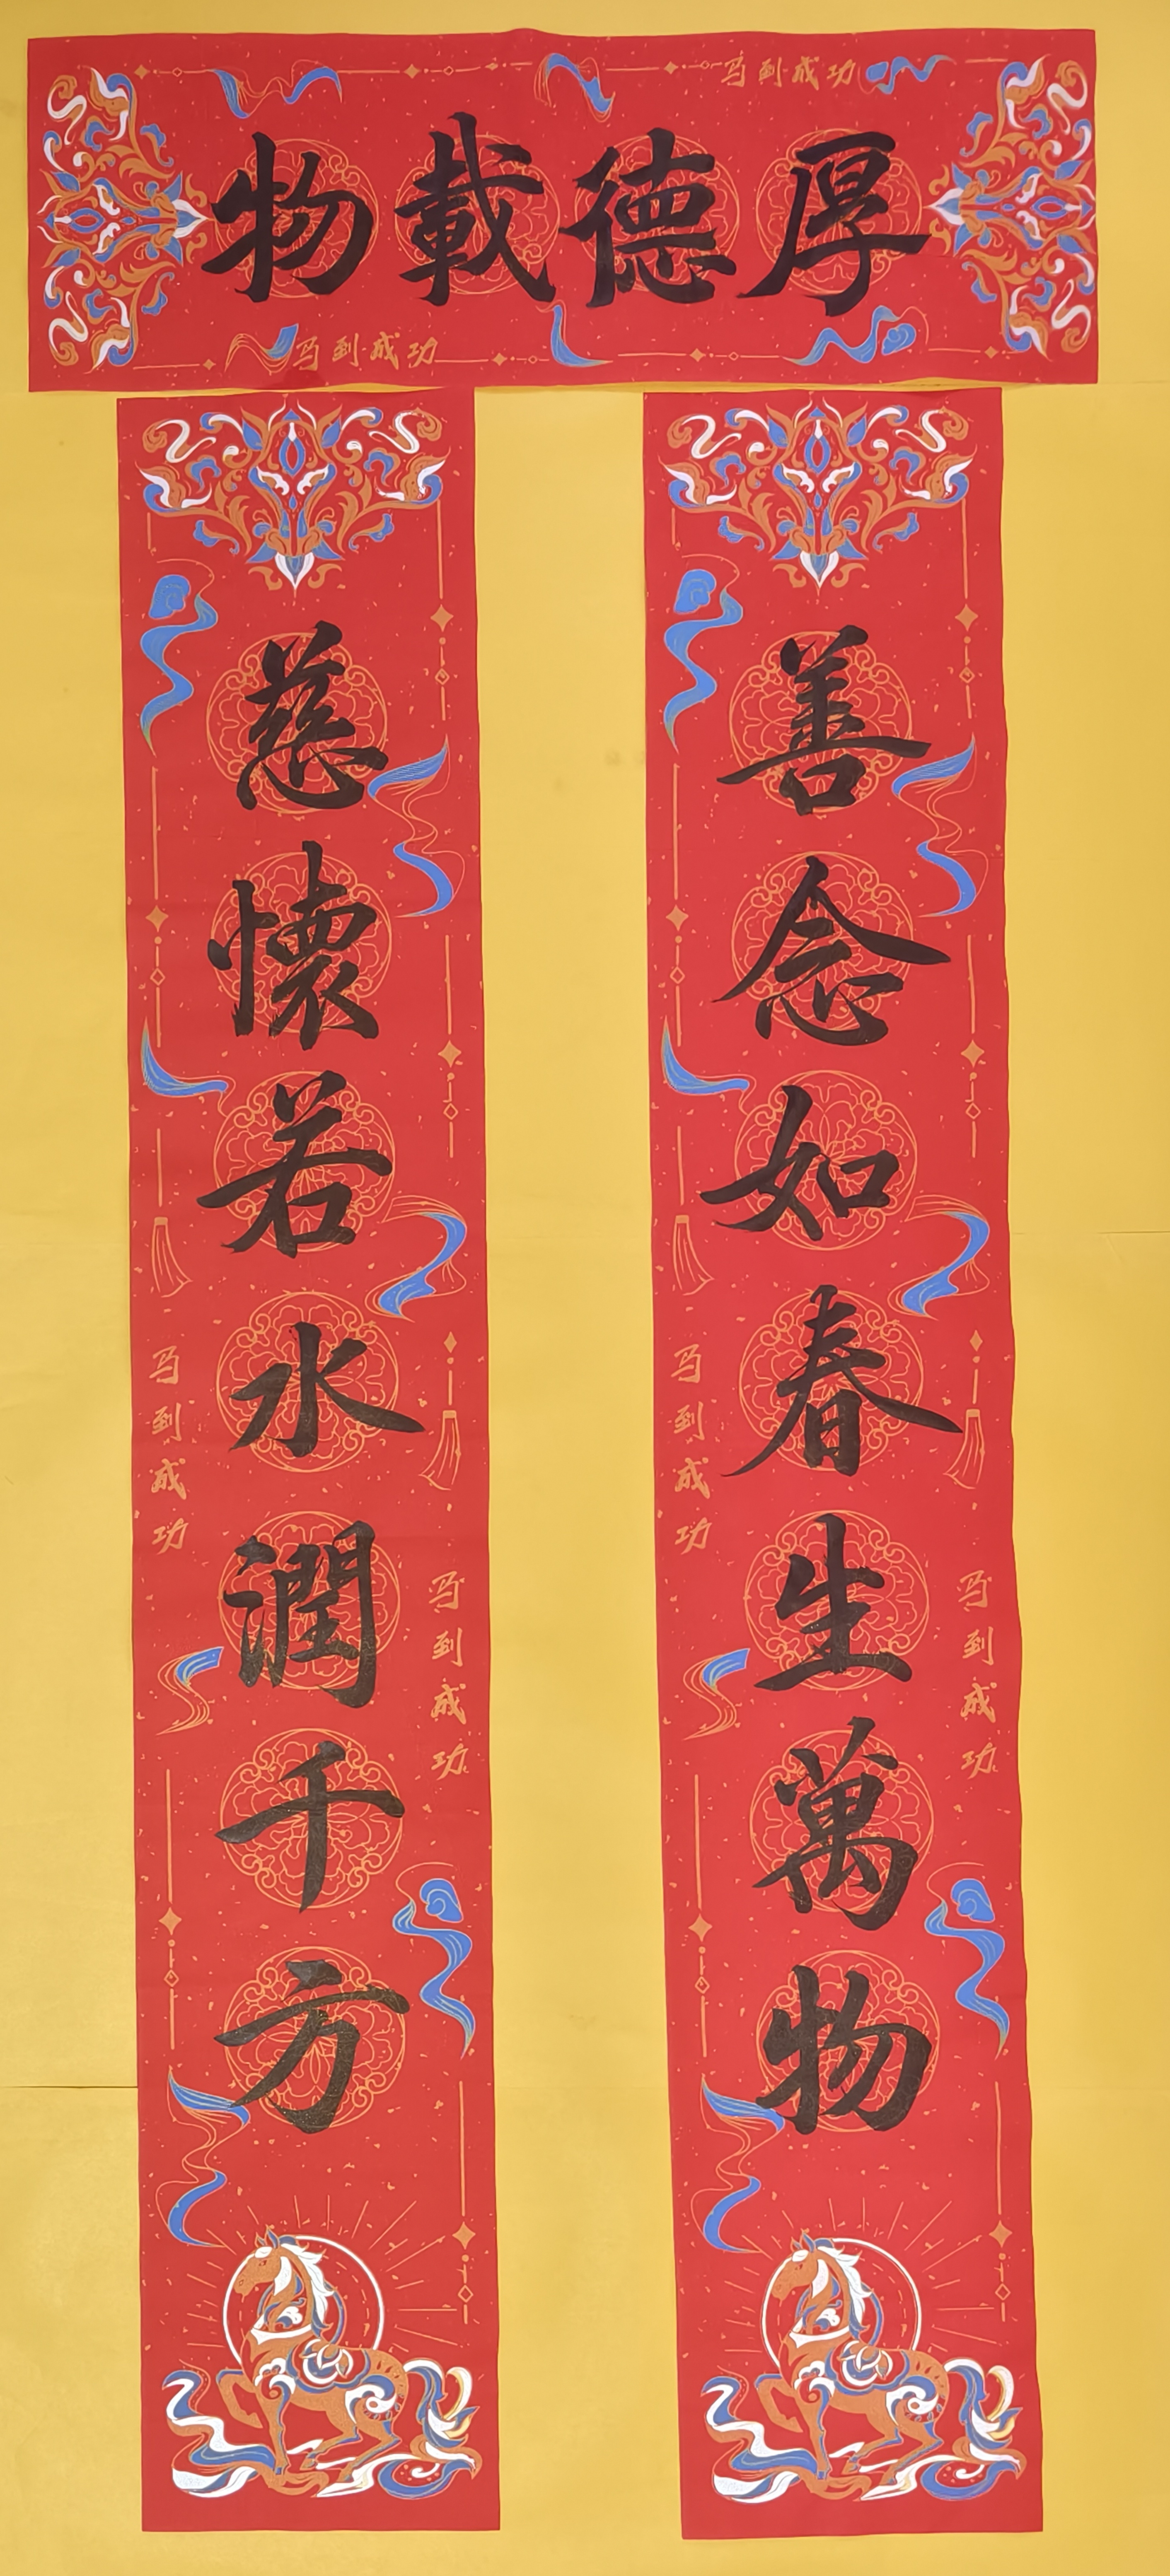 厚德載物
马到成功
马到成功
善念如春生萬物
马到成功
马到成功
慈懷若水潤千方
马到成功
马到成功